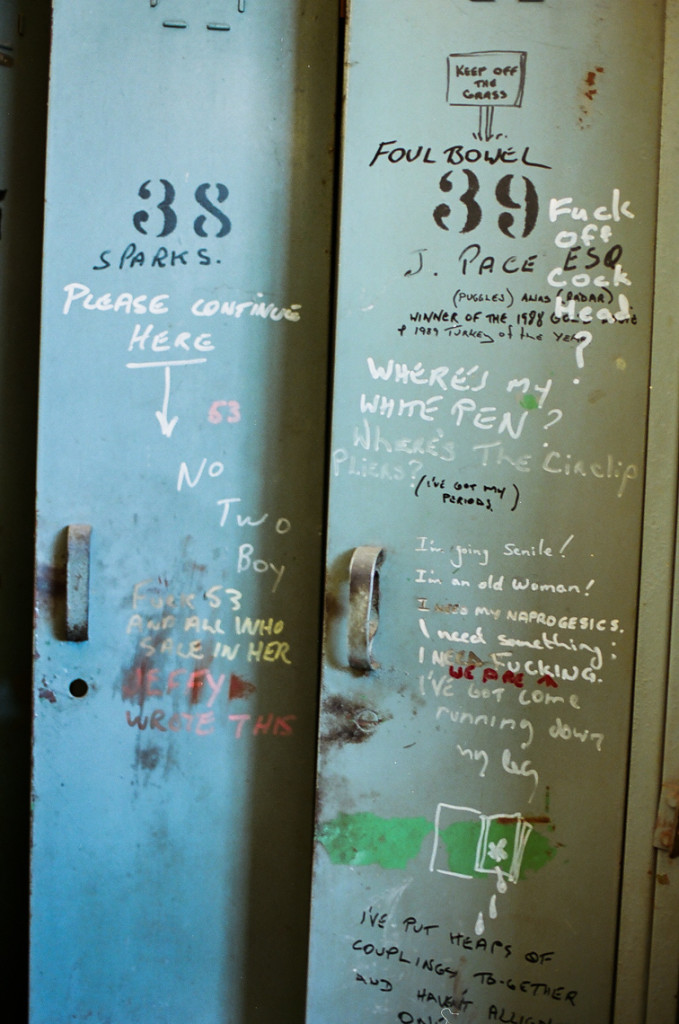 38
SPARKS.
PLEASE CONTINUE
HERE
53
NO
TWO
BOY
FUCK 53
AND ALL WHO
SALE IN HER
JEFFY
WROTE THIS
KEEP OFF
THE
GRASS
FOUL BOWEL
39
J. PACE ESQ
(PUGGLES) ALIAS (RADAR)
WINNER OF THE 1988
& 1989 TURKEY of the YEAR
Fuck
off
Cock
Head
?
WHERE'S MY
WHITE PEN?
WHERE'S THE Circlip
PLIERS?
(I'VE GOT MY
PERIODS)
I'm going Senile!
I'm an old woman!
I NEED MY NAPROGESICS.
I need something:
I NEED FUCKING.
WE ARE
I'VE GOT come
running down
my leg
I'VE PUT HEAPS OF
COUPLINGS TO-GETHER
AND HAVEN'T ALLIGN